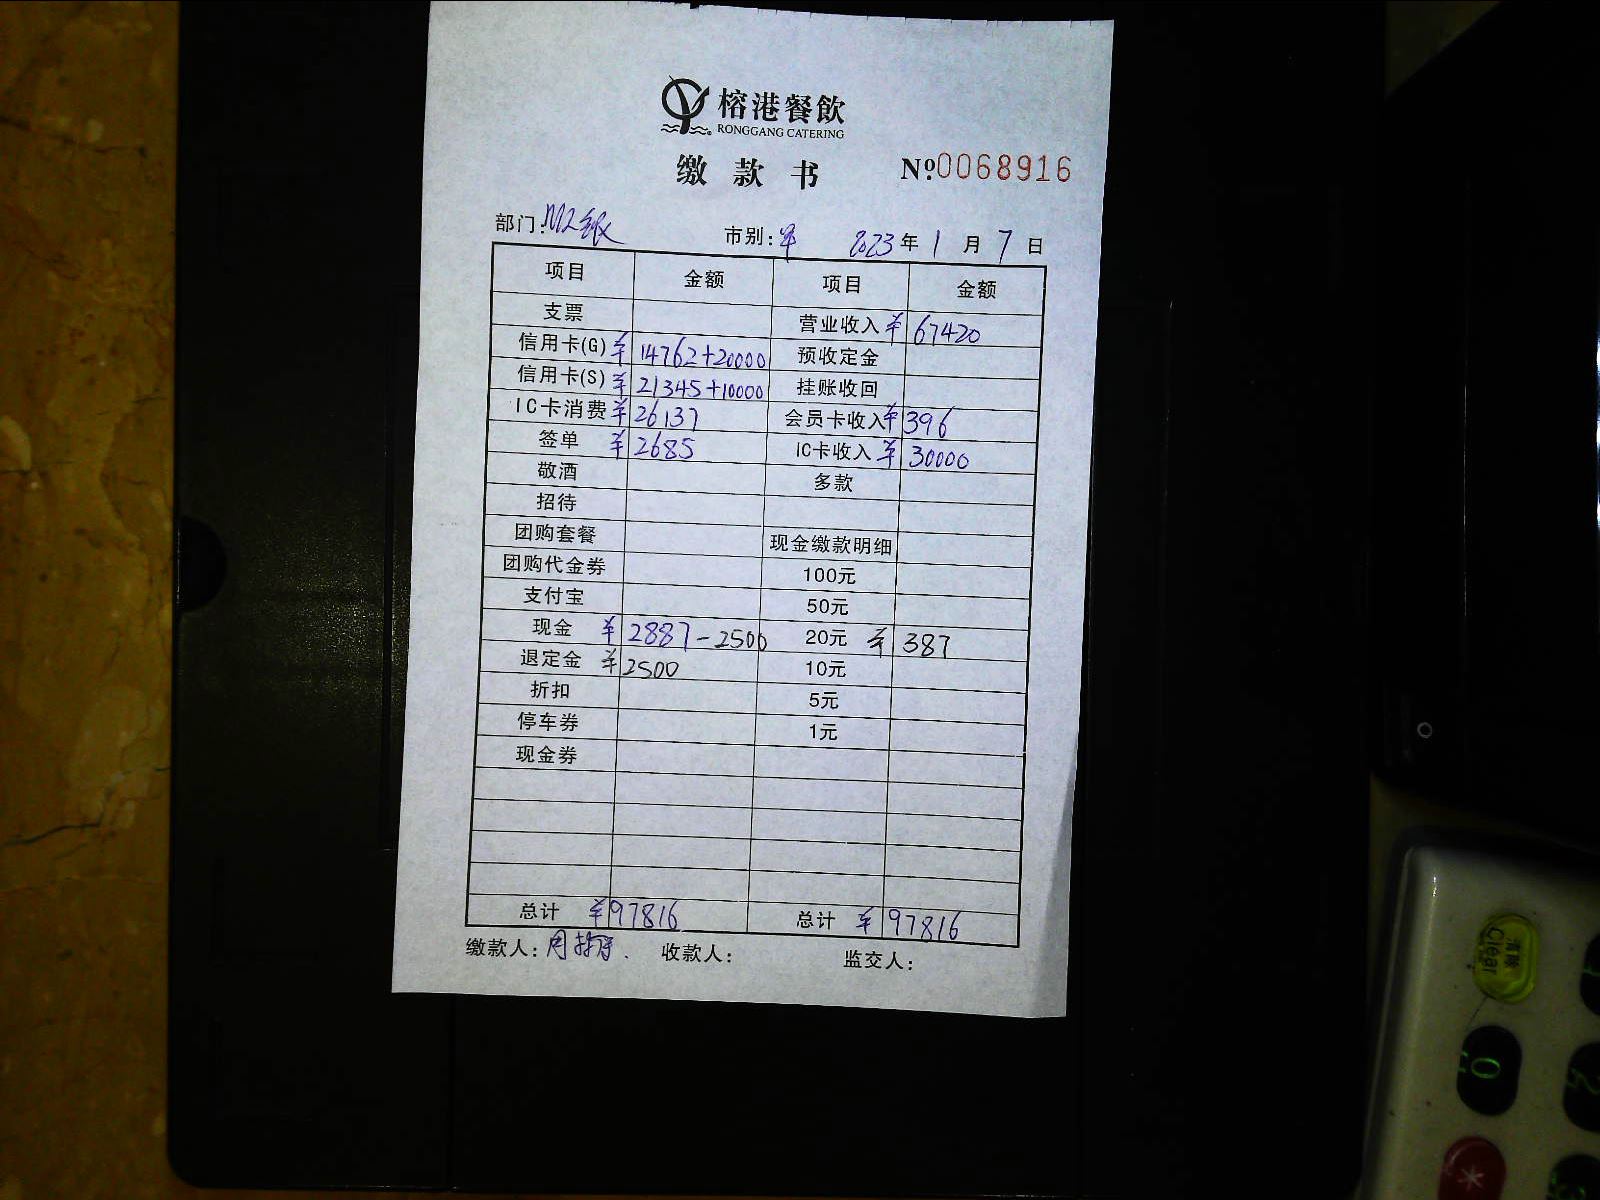 榕港餐飲
RONGGANG CATERING
缴款书 №0068916
部门: M2 市别: 2023年1月7日
项目 金额 项目 金额
支票 营业收入 ¥67420
信用卡(G) ¥14762+20000 预收定金
信用卡(S) ¥21345+10000 挂账收回
IC卡消费 ¥26137 会员卡收入 ¥396
签单 ¥2685 IC卡收入 ¥30000
敬酒 多款
招待
团购套餐 现金缴款明细
团购代金券 100元
支付宝 50元
现金 ¥2887-2500 20元 ¥387
退定金 ¥2500 10元
折扣 5元
停车券 1元
现金券
总计 ¥97816 总计 ¥97816
缴款人: 周 收款人: 监交人:
清除
Clear
0
*